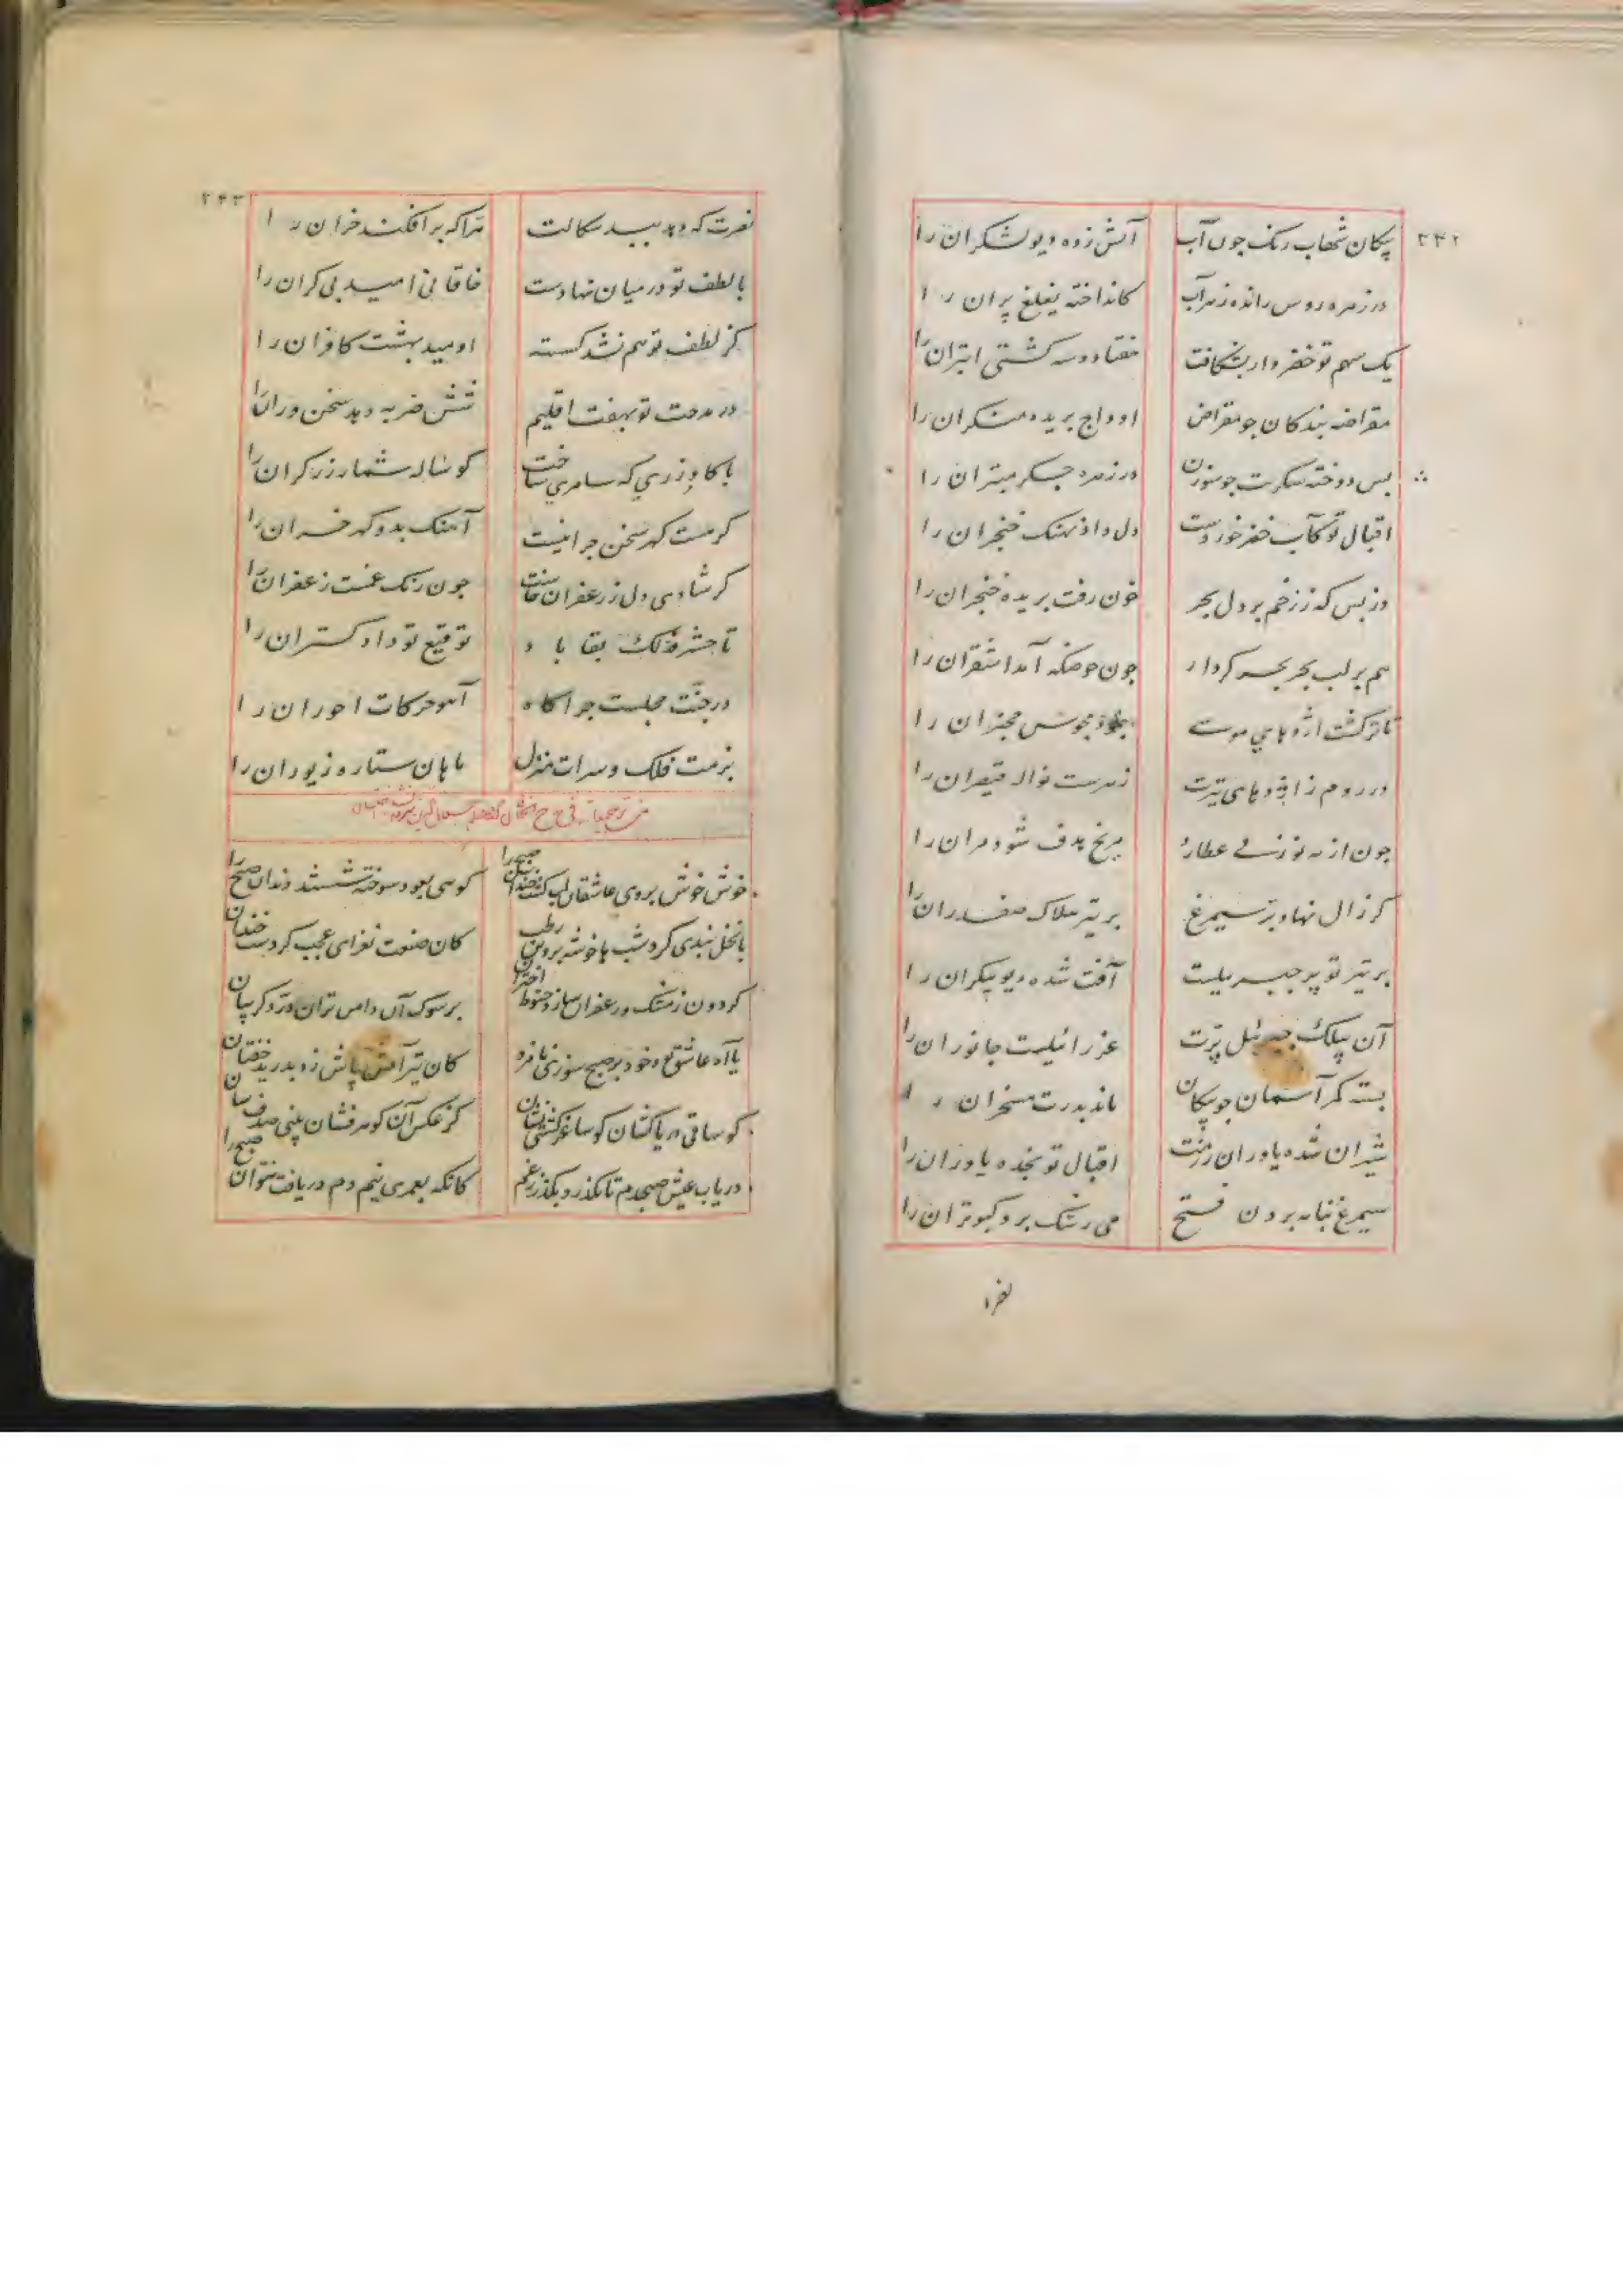 ۲۴۲
پیکان شهاب رنک چون آب آتش زده دیو لشکران را
در زهره روس رانده زهر آب کانداخته یغلغ پران را
یک سهم تو خضر وار بشکافت هفتاد و سه کشتی ابتران را
مقراضه بندکان جو مقراض اوداج بریده منکران را
بس دوخته سکرت جو سوزن در زهره جسکر مبتران را
اقبال تو کآب خضر خوردست دل داد نهنک خنجران را
وز بس که ز زخم بر دل بحر خون رفت بریده خنجران را
هم بر لب بحر بحر کردار جون حوضکه آمد اشقران را
تا ترکشت اژدهای موسی مجوس مجنران را
در روم ز اژدهای تیرت زهرست نواله قیصران را
جون از مه نو زنی عطارد مریخ هدف شود مران را
کر زال نهاد پر سیمرغ بر تیر هلاک صفدران را
بر تیر تو پر جبرییلست آفت شده دیو پیکران را
آن بیلک جبرئیل پرت عزرائیلیست جانوران را
بسته کمر آسمان جو پیکان ماند بدرت مسخران را
شیران شده یاوران رزمت اقبال تو نجده یاوران را
سیمرغ نیابه بردن فتح می رشک برد کبوتران را
۲۴۳
نصرت که دهد ببد سکالت هرا که برافکند خران را
با لطف تو در میان نهادست خاقانی امید بی کران را
کز لطف تو هم نشد کسسته اومید بهشت کافران را
در مدحت تو بهفت اقلیم شش ضربه دهد سخن وران را
با کاو زری که سامری ساخت کوساله شمار زرکران را
کر مست کهر سخن جرا نیست آهنک بدو کهر خران را
کر شادی دل ز زعفران خاست جون رنک غمست زعفران را
تا حشر فذلک بقا باد توقیع تو داد کستران را
در جنت مجلست جرا کاه آهو حرکات احوران را
بزمت فلک و سرات منزل ماهان ستاره زیوران را
خوش خوش بروی عاشقان لب کشت خندان صبح را کوسی بعود سوخته شستند دندان صبح را
یا نخل بندی کرد شب با خوشه پروین رطب کان صنعت نغزای عجب کردست خندان
کردون ز مشک و زعفران سازد حنوط اختران بر سوک آن دامن تران درد کریبان
یا آه عاشق بود خود بر صبح سوزنی نامزد کان تیر آتش پاش زد بدرید خفتان
کو ساقی دریاکشان کو ساغر کشتی نشان کز عکس آن کوهر فشان بینی صدف سان صبح را
دریاب عیش صبحدم تا نکذرد بکذر ز غم کانکه بعمری نیم دم دریافت نتوان